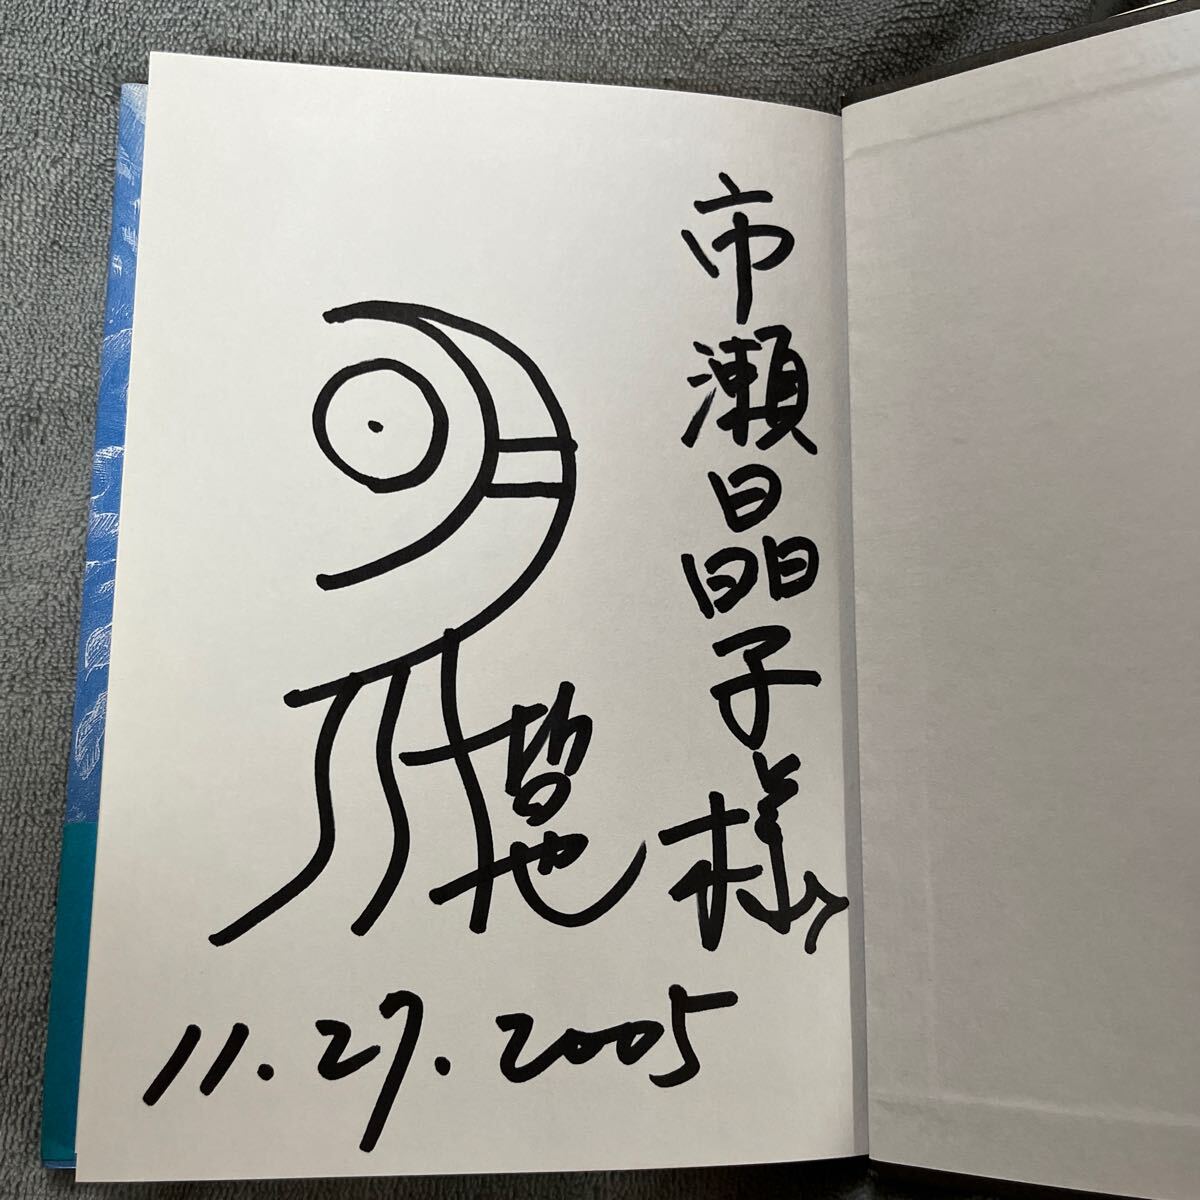 市瀬晶子様
明川哲也
11.27.2005